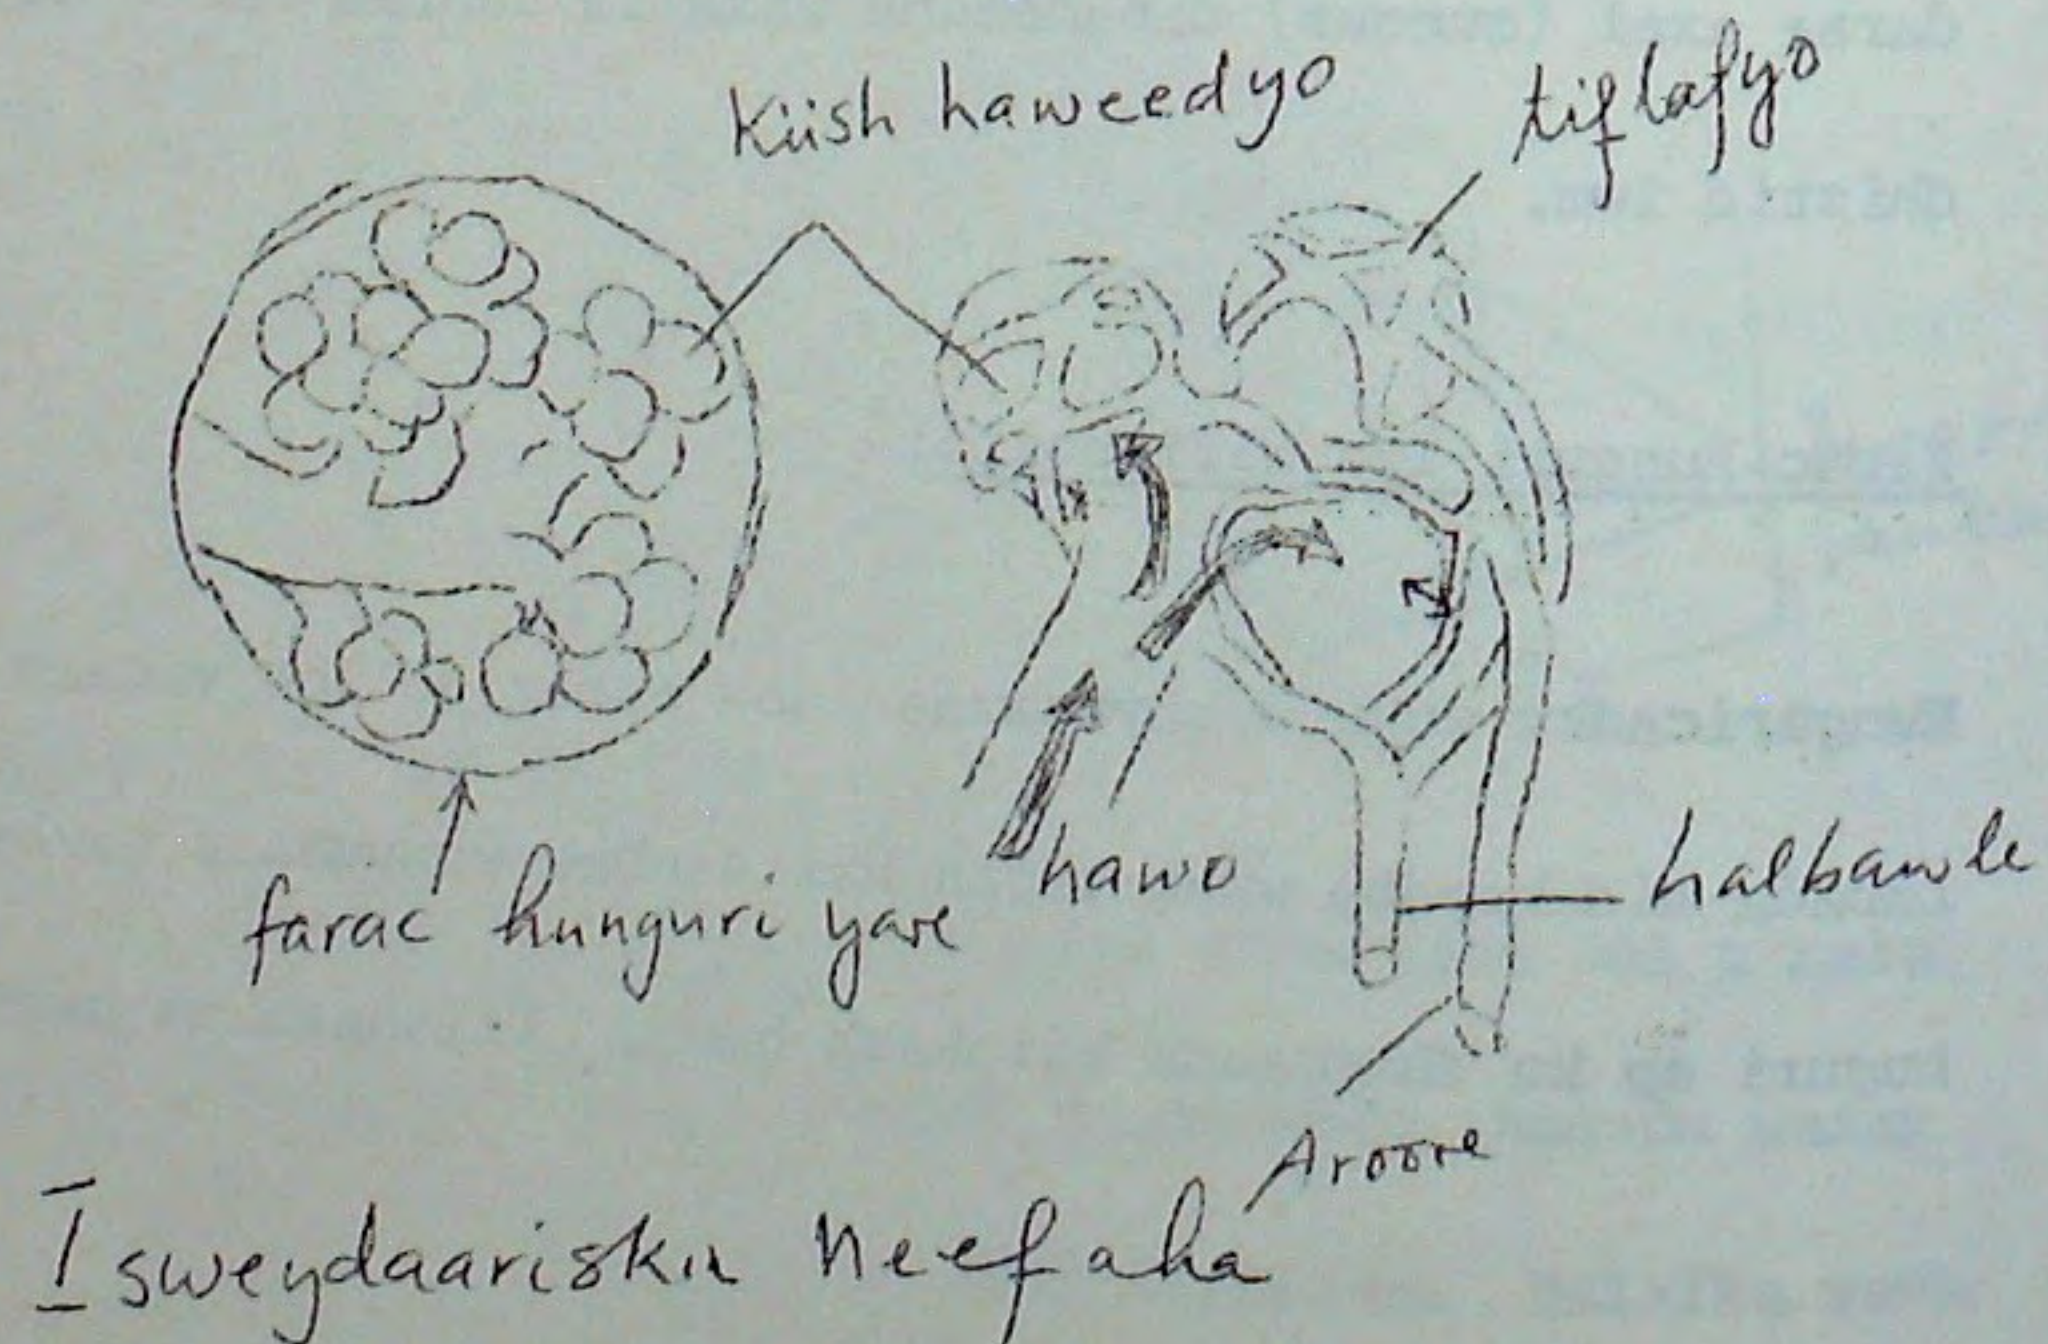 Kiish haweedyo
tiflafyo
farac hunguri yare
hawo
halbawle
Aroore
Isweydaariska neefaha